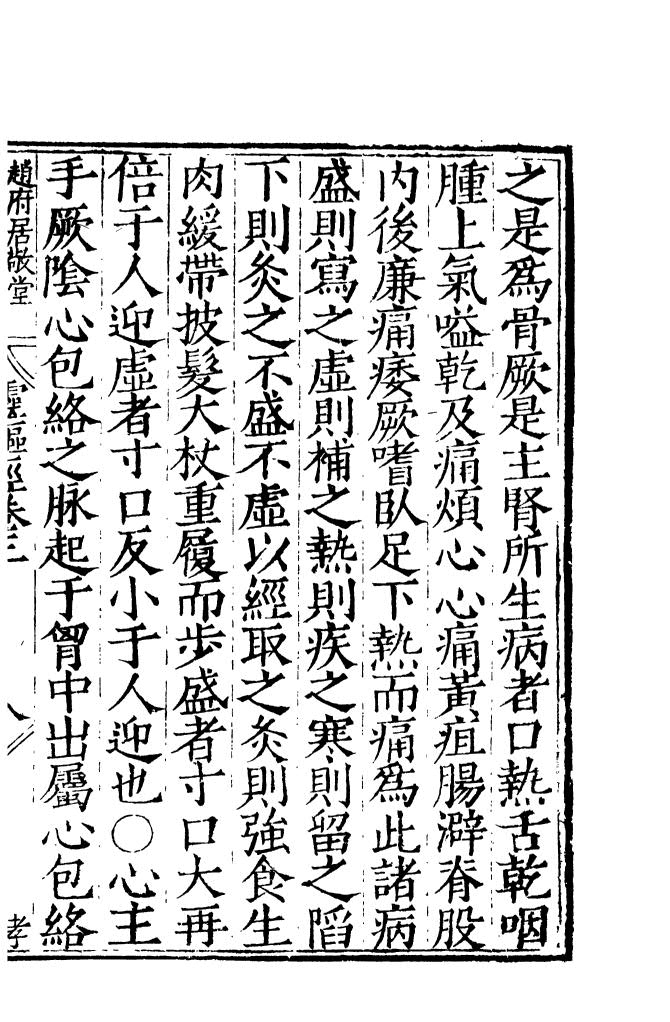 之是爲骨厥是主腎所生病者口熱舌乾咽
腫上氣嗌乾及痛煩心心痛黃疸腸澼脊股
內後廉痛痿厥嗜臥足下熱而痛爲此諸病
盛則寫之虛則補之熱則疾之寒則留之䧟
下則灸之不盛不虛以經取之灸則強食生
肉緩帶披髮大杖重履而步盛者寸口大再
倍于人迎虛者寸口反小于人迎也〇心主
手厥隂心包絡之脉起于胷中出屬心包絡
趙府居敬堂 靈樞經卷三 八 孝